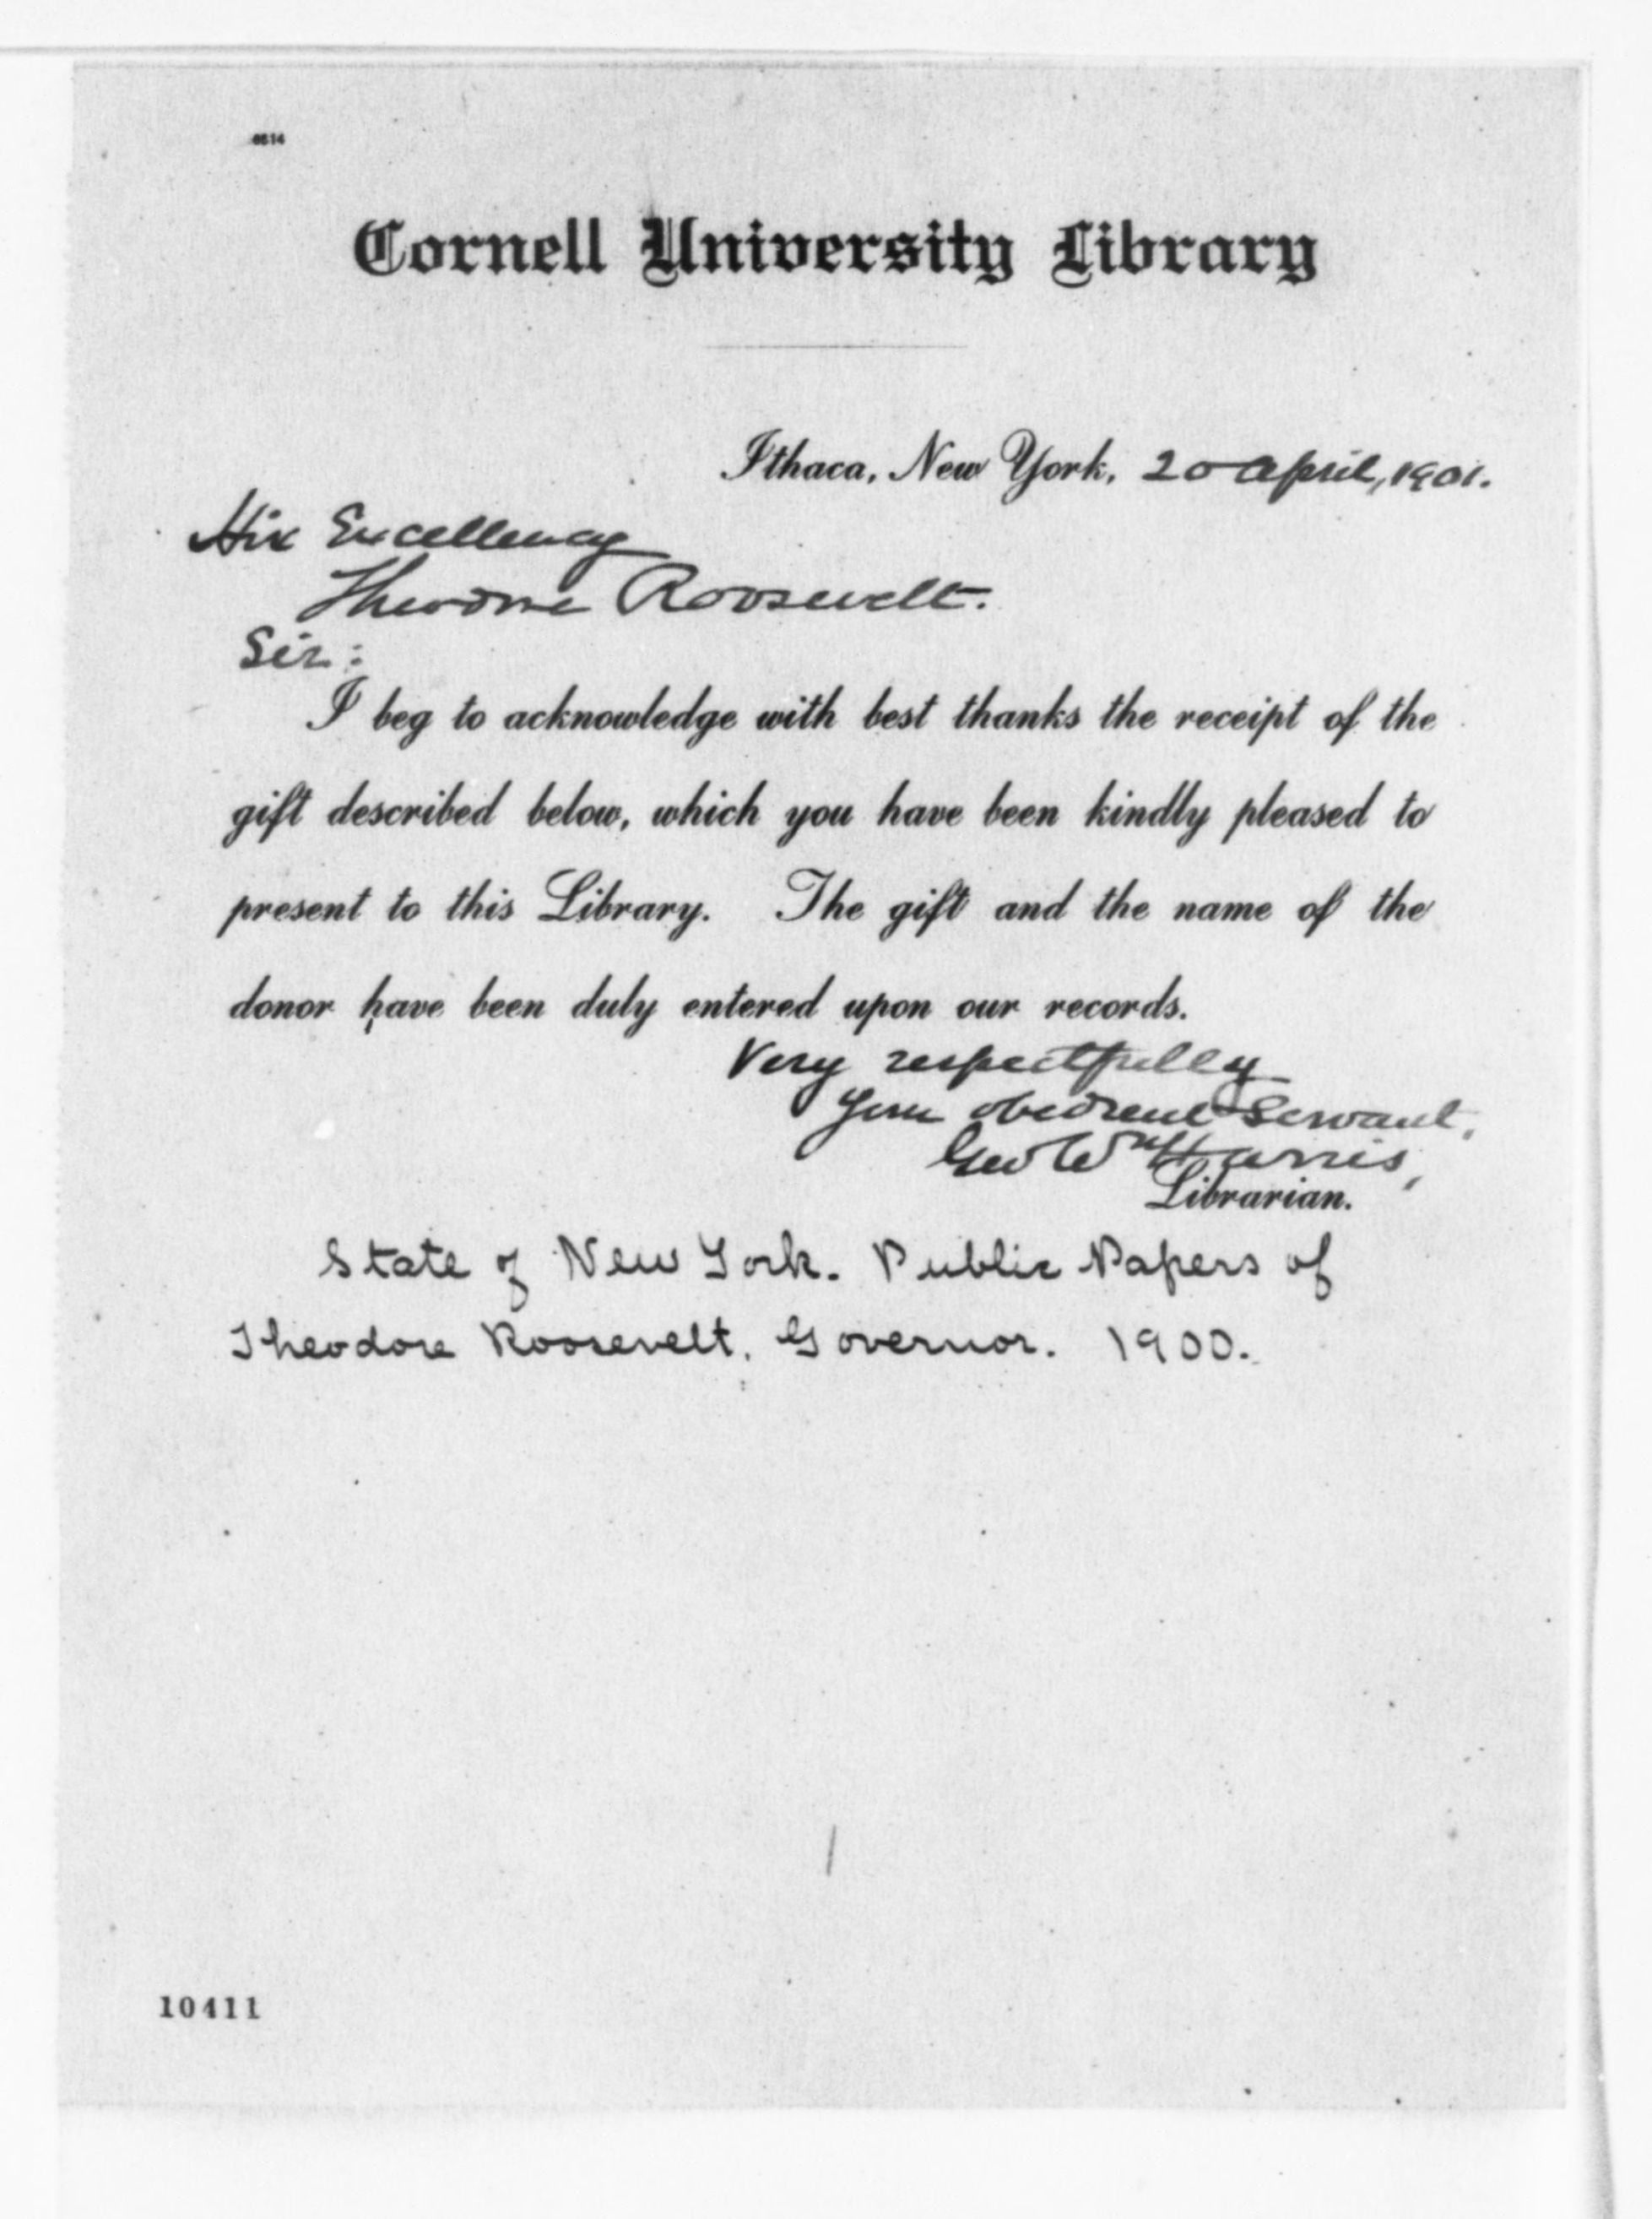 6614
Cornell University Library
Ithaca, New York, 20 April, 1901.
His Excellency
Theodore Roosevelt.
Sir:
I beg to acknowledge with best thanks the receipt of the
gift described below, which you have been kindly pleased to
present to this Library. The gift and the name of the
donor have been duly entered upon our records.
Very respectfully
Your obedient Servant,
Geo Wm Harris,
Librarian.
State of New York. Public Papers of
Theodore Roosevelt, Governor. 1900.
10411